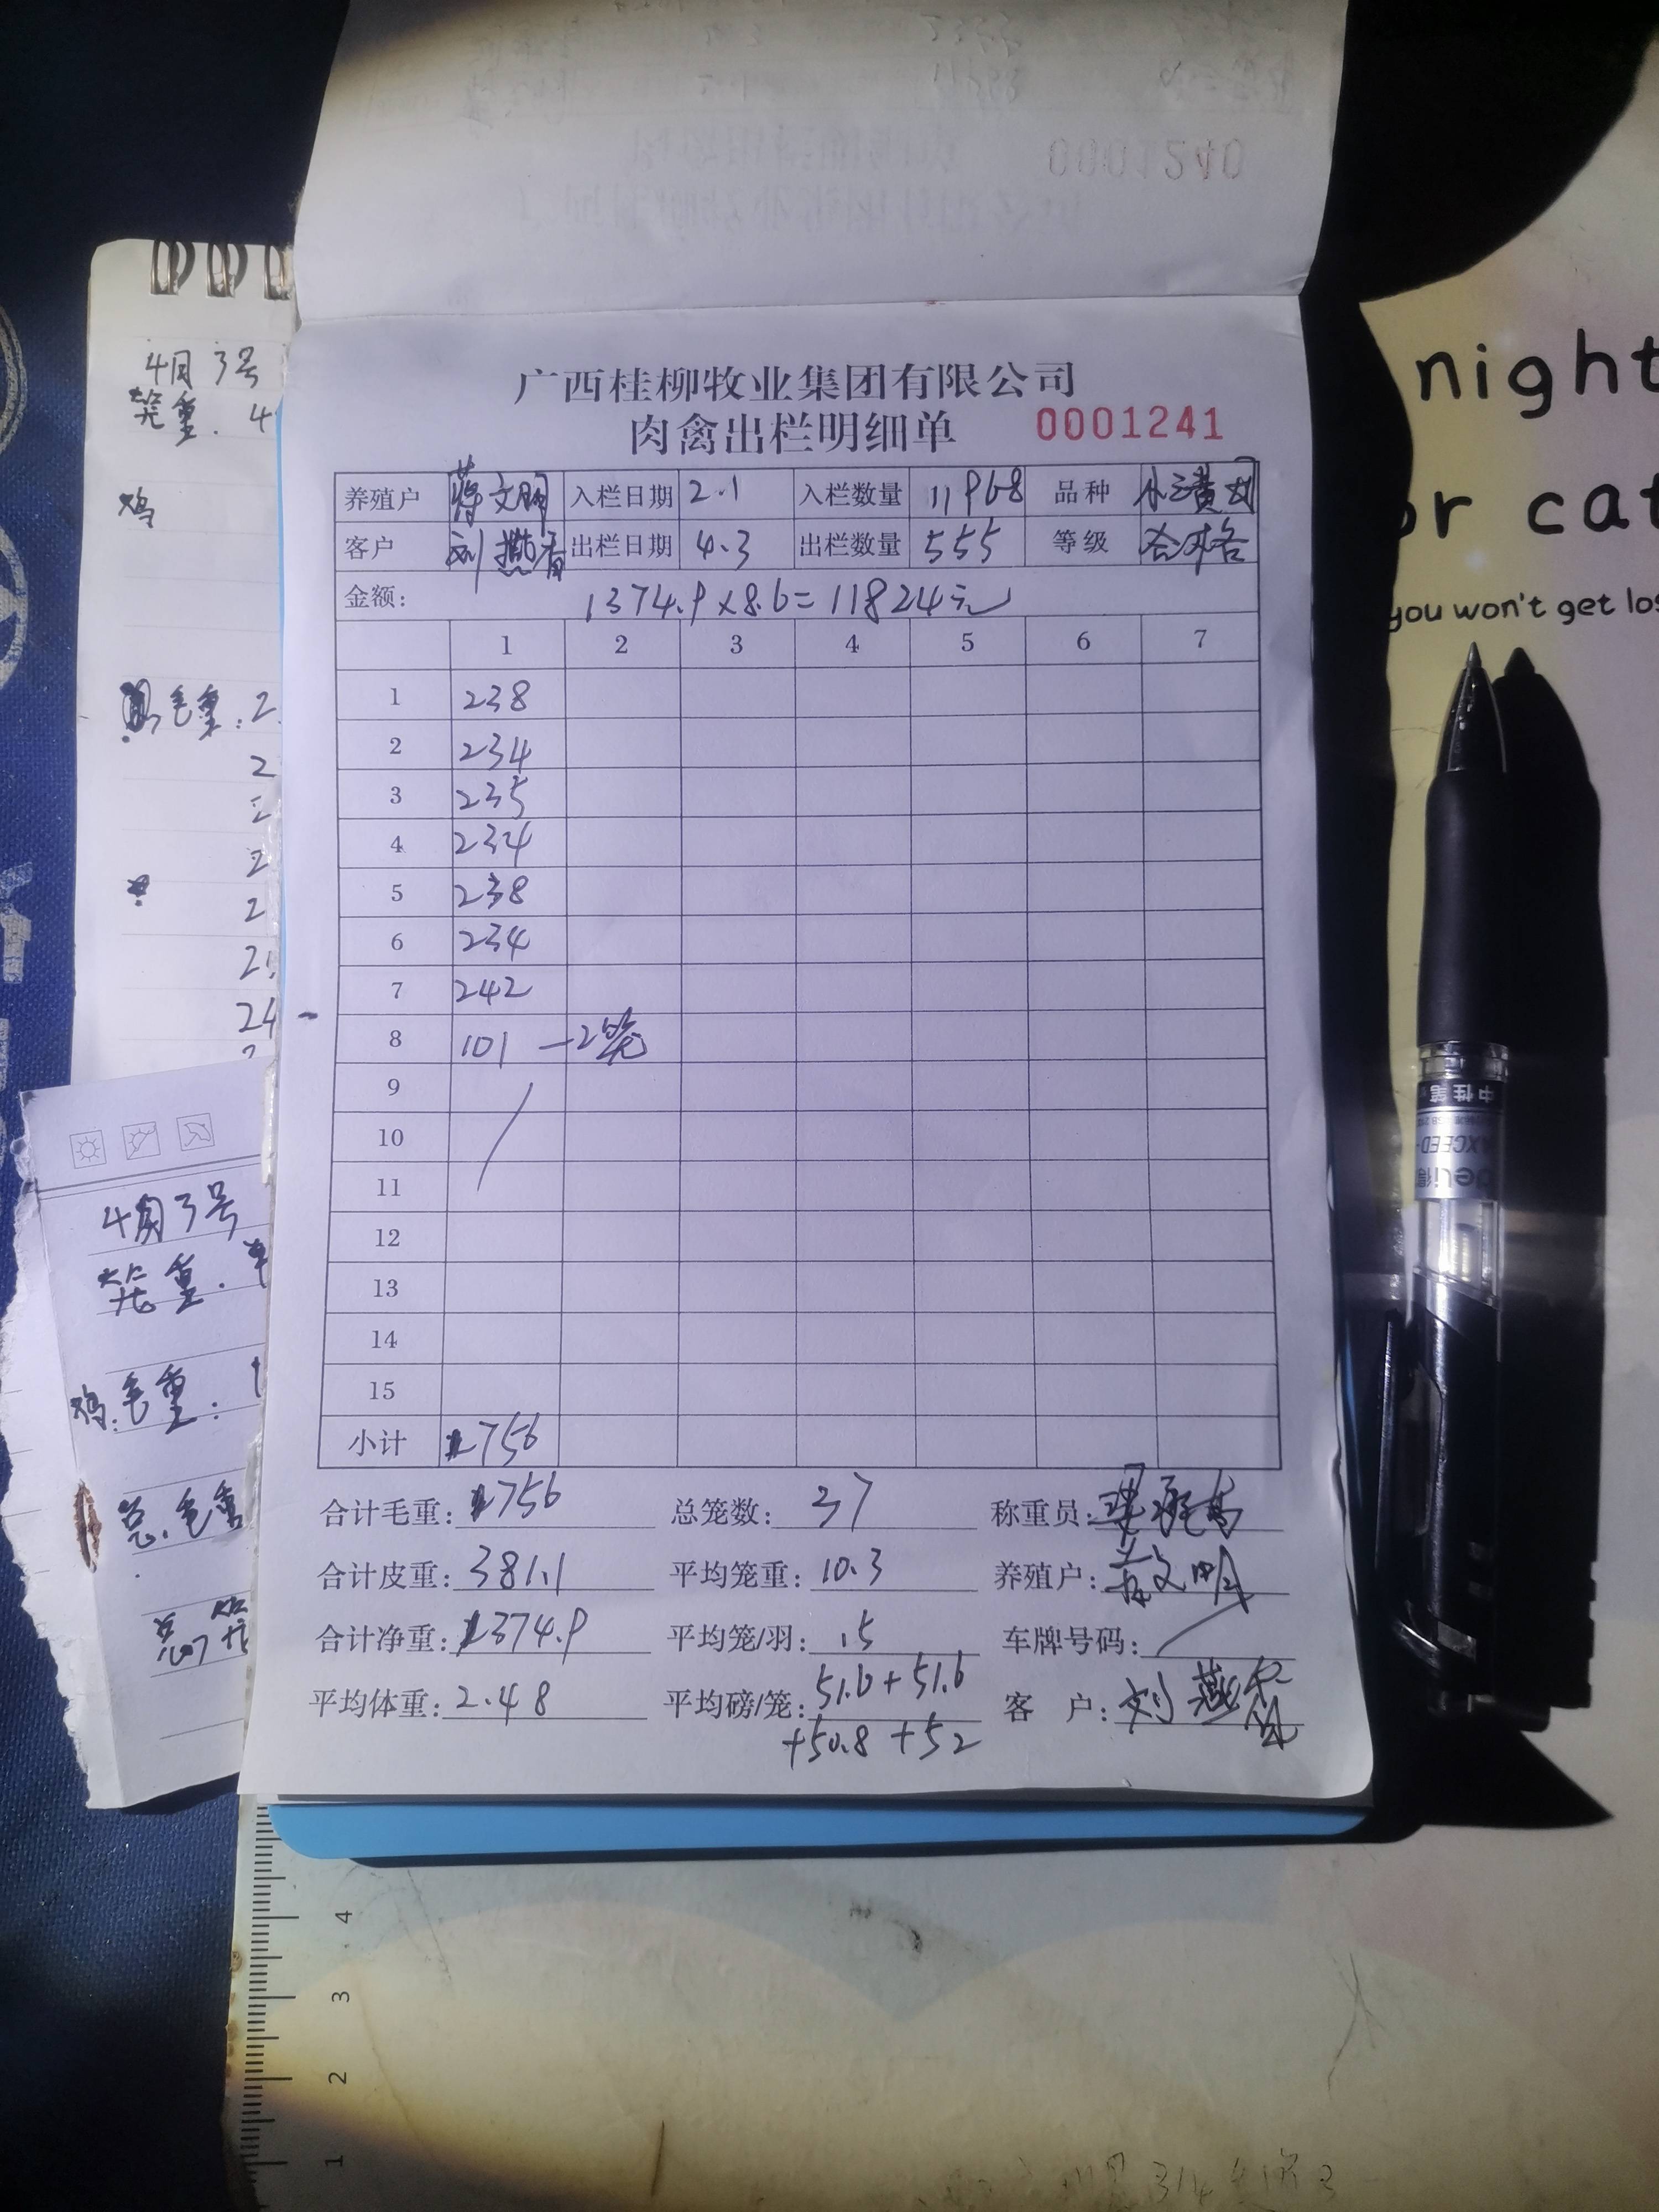 0001240
4月3号
笼重.4
鸡
毛重:2
2
2
2
2
24
广西桂柳牧业集团有限公司
肉禽出栏明细单 0001241
养殖户 蒋文明 入栏日期 2.1 入栏数量 11968 品种
客户 刘燕香 出栏日期 4.3 出栏数量 555 等级 合格
金额: 1374.9×8.6=11824元
1 2 3 4 5 6 7
1 238
2 234
3 235
4 234
5 238
6 234
7 242
8 101 —2笼
9
10
11
12
13
14
15
小计 1756
合计毛重: 1756 总笼数: 37 称重员:
合计皮重: 381.1 平均笼重: 10.3 养殖户: 蒋文明
合计净重: 1374.9 平均笼/羽: 15 车牌号码:
平均体重: 2.48 平均磅/笼: 51.6+51.6 客 户: 刘燕香
+50.8+52
4月3号
笼重.
鸡.毛重:1
总.毛重
总笼
night
or cat
you won't get los
中性笔
deli得
4
3
2
1